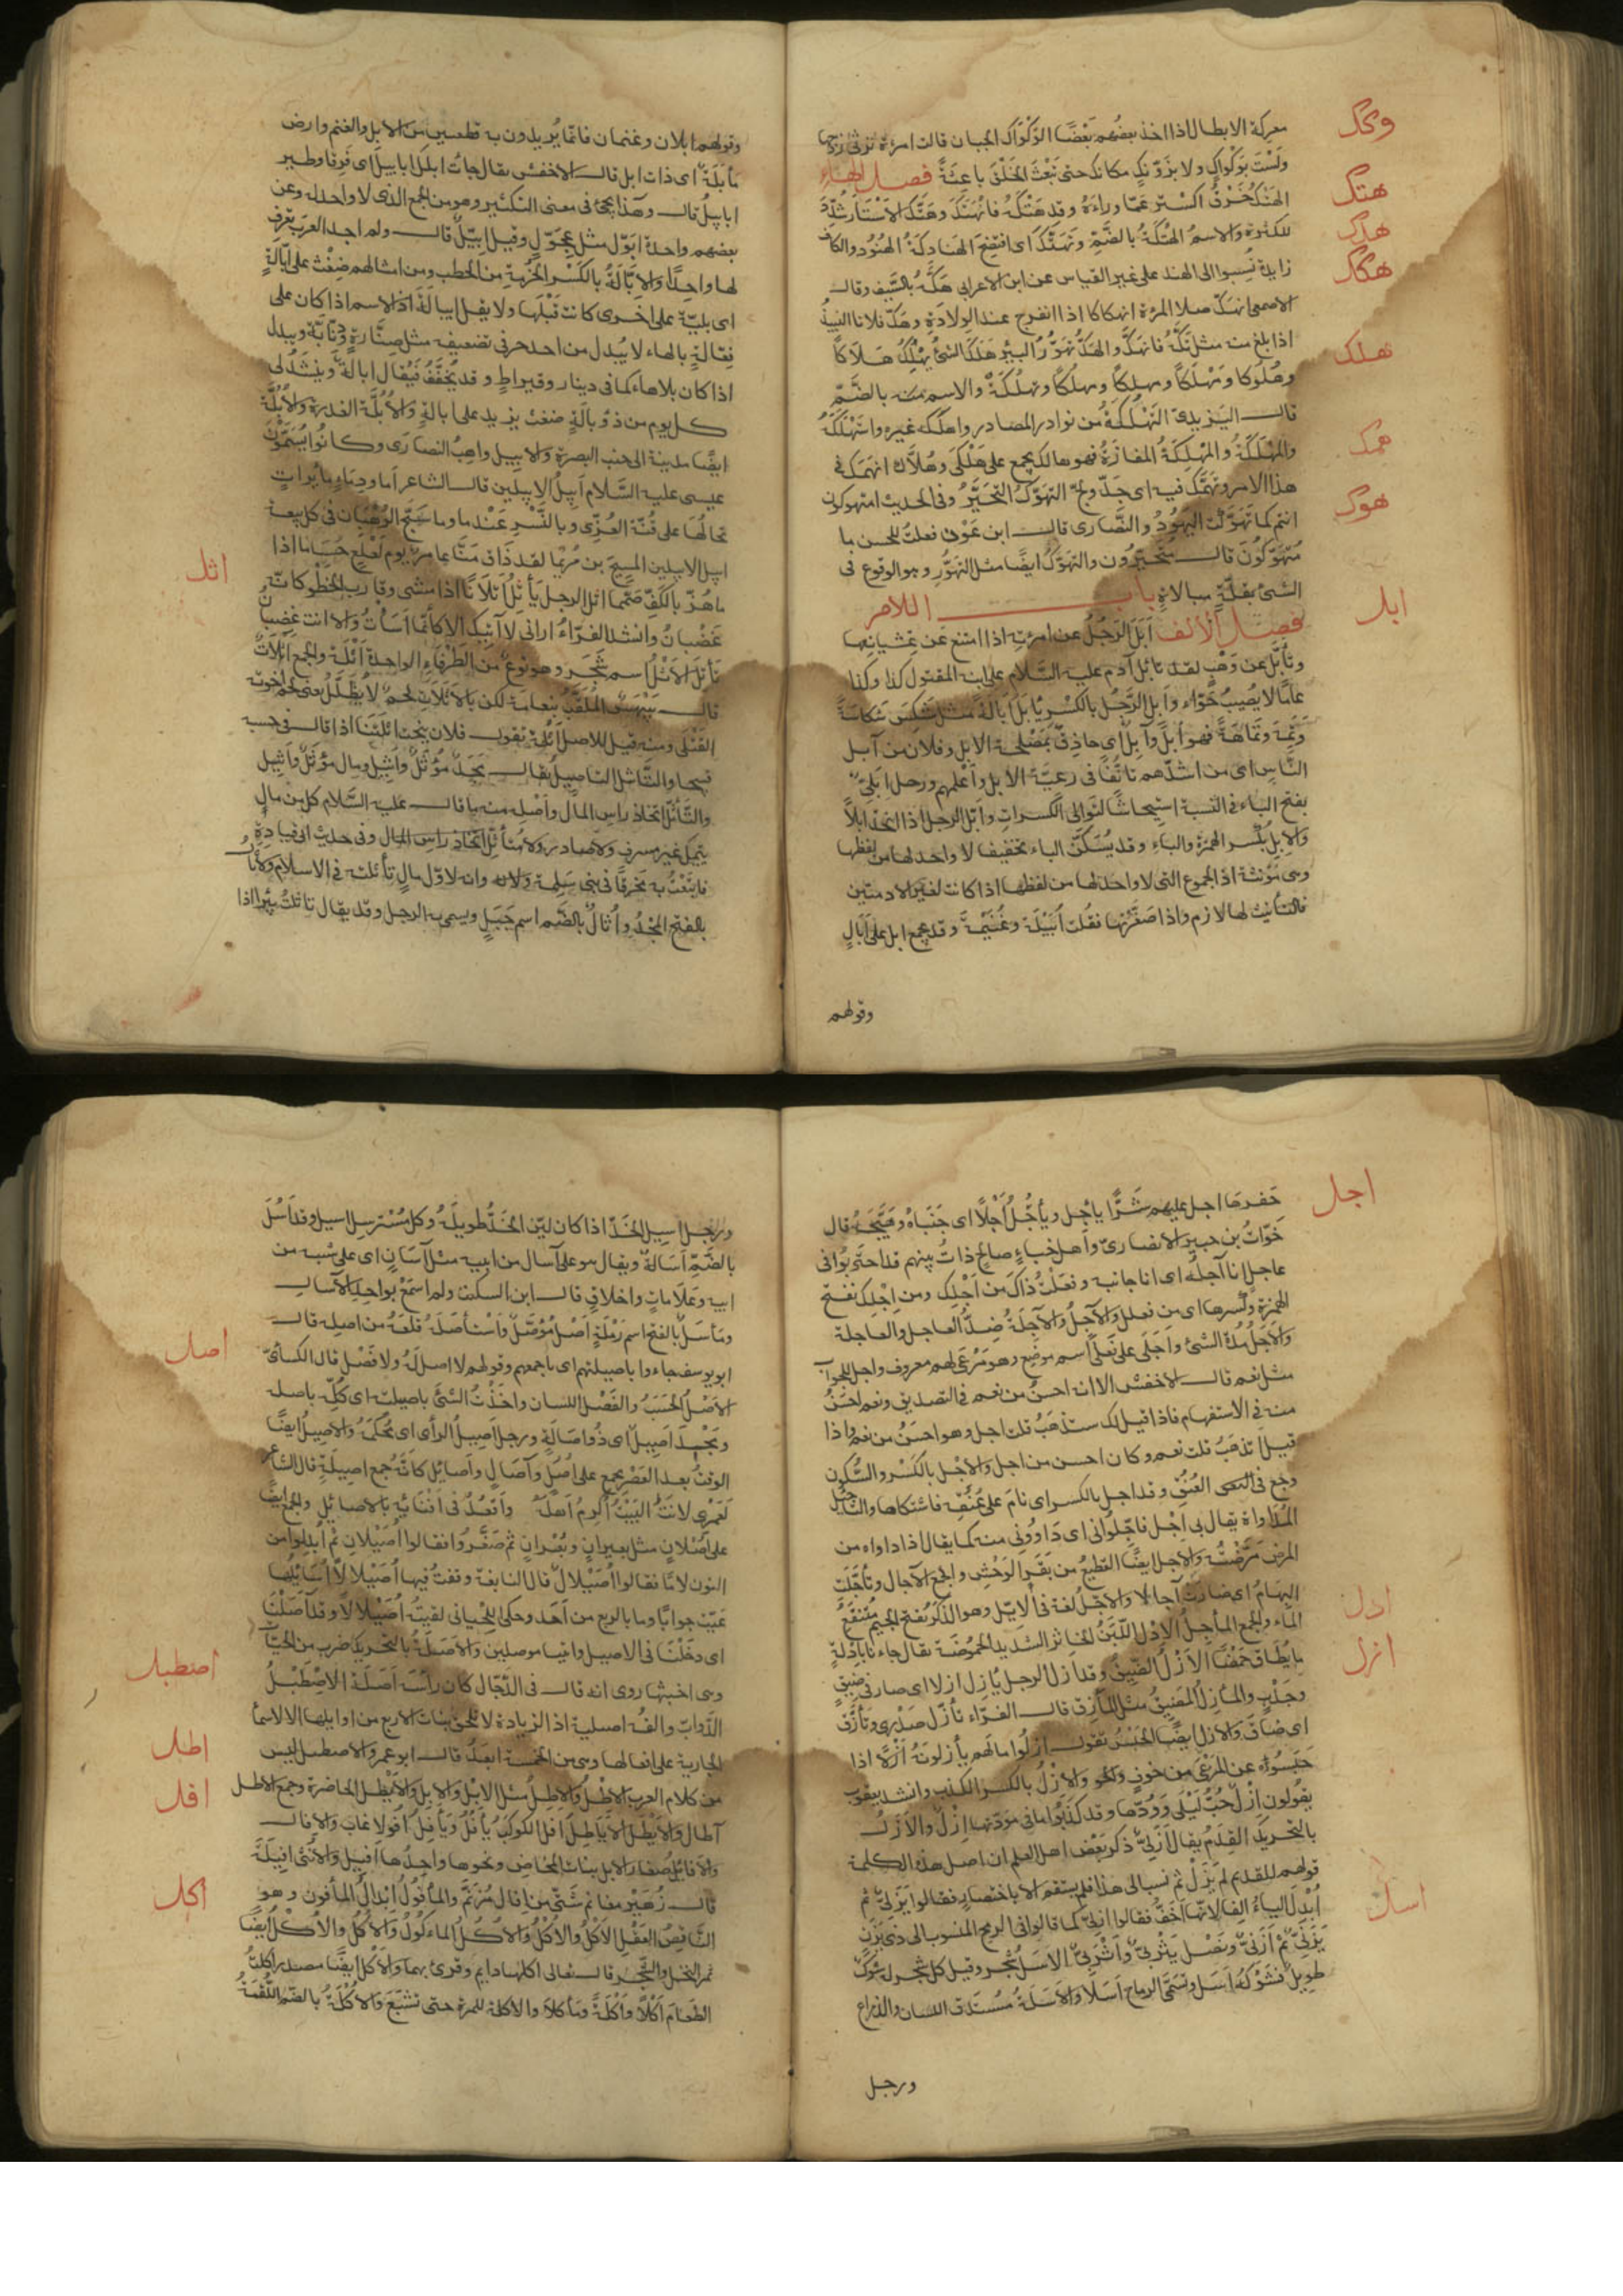 معركة الابطال اذا اخذ بعضهم بعضا الوكواك الجبان قالت امرءة ترثى زوجها
وكك
ولست بوكواك ولا بزونك مكانك حتى يبعث الخلق باعثة فصل الهاء
هتك
الهتك خرق الستر عما وراءه وقد هتكه فانهتك وهتك الاستار شدد
هدك
للكثرة والاسم الهتكة بالضم وتهتك اى افتضح الهنادكة الهنود والكاف
هكك
زايدة نسبوا الى الهند على غير القياس عن ابن الاعرابى هكه بالسيف وقال
الاصمعى انهك صلا المرءة انهكاكا اذا انفرج عند الولادة وهك فلانا النبيذ
اذا بلغ منه مثل تكه فانهك والهك تهور البير هلك الشئ يهلك هلاكا
هلك
وهلوكا ومهلكا ومهلكا ومهلكا وتهلكة والاسم منه بالضم
قال اليزيدى التهلكة من نوادر المصادر واهلكه غيره واستهلكه
والمهلكة والمهلكة المفازة فهو هالك يجمع على هلكى وهلاك انهمك فى
همك
هذا الامر وتهمك فيه اى جد ولج التهوك التحير وفى الحديث امتهوكون
هوك
انتم كما تهوكت اليهود والنصارى قال ابن عون فقلت للحسن ما
متهوكون قال متحيرون والتهوك ايضا مثل التهور وهو الوقوع فى
الشئ بقلة مبالاة باب اللام
ابل
فصل الالف ابل الرجل عن امرءته اذا امتنع عن غشيانها
وتابل عن وهب لقد تابل آدم عليه السلام على ابنه المقتول كذا وكذا
عاما لا يصيب حواء وابل الرجل بالكسر يابل ابالة مثل شكس شكاسة
وتمه وتماهة فهو ابل وآبل اى حاذق بمصلحة الابل وفلان من آبل
الناس اى من اشدهم تانقا فى رعية الابل واعلمهم ورجل ابلى
بفتح الباء فى النسبة استيحاشا لتوالى الكسرات وابل الرجل اذا اتخذ ابلا
والابل بكسر الهمزة والباء وقد يسكن الباء تخفيفا لا واحد لها من لفظها
وهى مؤنثة اذ الجموع التى لا واحد لها من لفظها اذا كانت لغير الادميين
فالتانيث لها لازم واذا صغرتها فقلت ابيلة وغنيمة وقد يجمع ابل على آبال
وقولهم
وقولهم ابلان وغنمان فانما يريدون به قطعيين من الابل والغنم وارض
مأبلة اى ذات ابل قال الاخفش يقال جاءت ابلك ابابيل اى فرقا وطير
ابابيل قال وهذا يجئ فى معنى التكثير وهو من الجمع الذى لا واحد له وعن
بعضهم واحدة ابول مثل عجول وقيل ابيل قال ولم اجد العرب يعرف
لها واحدا والابالة بالكسر الحزمة من الحطب ومن امثالهم ضغث على ابالة
اى بلية على اخرى كانت قبلها ولا يقل ايبالة اذ الاسم اذا كان على
فعالة بالهاء لا يبدل من احد حرفى تضعيفه مثل صنارة ودنابة ويبدل
اذا كان بلا هاء كما فى دينار وقيراط وقد يخفف فيقال ابالة وينشد لى
كل يوم من ذؤالة ضغث يزيد على ابالة والابلة الفدرة والابلة
ايضا مدينة الى جنب البصرة والابيل راهب النصارى وكانوا يسمون
عيسى عليه السلام ابيل الابيلين قال الشاعر اما ودماء مايرات
تخالها على قنة العزى وبالنسر عندما وما سبح الرهبان فى كل بيعة
ابيل الابيلين المسيح بن مريما لقد ذاق منا عامر يوم لعلع حساما اذا
اثل
ما هز بالكف صمما اثل الرجل يأثل اثلانا اذا مشى وقارب الخطو كانه
غضبان وانشد الفراء ارانى لا آتيك الا كأنما اسأت والا انت غضبان
تأتل الاثل اسم شجر وهو نوع من الطرفاء الواحدة اثلة والجمع اثلات
قال بيهس الملقب بنعامة لكن بالاثلات لحم لا يظلل يعنى لحم اخوته
القتلى ومنه قيل للاصل اثلة تقول فلان ينحت اثلتنا اذا قال فى حسبه
قبيحا والتأثل التاصيل يقال مجد مؤثل واثيل ومال مؤثل واثيل
والتأثل اتخاذ راس المال واصله منه ما قال عليه السلام كل من مال
يتيمك غير مسرف ولا مبادر ولا متأثل اتخاذ راس المال وفى حديث ابى قتادة
فابتعت به مخرفا فى بنى سلمة وانه لاول مال تأثلته فى الاسلام والاثال
بالفتح المجد واثال بالضم اسم جبل ويسمى به الرجل وقد يقال تاثلت بيرا اذا
اجل
حفرها اجل عليهم شرا يأجل ويأجل اجلا اى جناه وهيجه قال
خوات بن جبير الانصارى واهل خباء صالح ذات بينهم قد احتربوا فى
عاجل انا آجله اى انا جانبه وفعلت ذاك من اجلك ومن اجلك بفتح
الهمزة وكسرها اى من فعلك والآجل والآجلة ضد العاجل والعاجلة
والاجل مدة الشئ واجلى على فعلى اسم موضع وهو مرعى لهم معروف واجل للجواب
مثل نعم قال الاخفش الا انه احسن من نعم فى التصديق ونعم احسن
منه فى الاستفهام فاذا قيل لك ستذهب قلت اجل وهو احسن من نعم واذا
قيل اتذهب قلت نعم وكان احسن من اجل والاجل بالكسر والسكون
وجع فى العنق وقد اجل بالكسر اى نام على عنقه فاشتكاها والتاجيل
المداواة يقال بى اجل فاجلونى اى داوونى منه كما يقال اذا داواه من
المرض مرضته والاجل ايضا القطيع من بقر الوحش والجمع الآجال وتأجلت
البهام اى صارت آجالا والاجل لغة فى الايل وهو الذكر بفتح الجيم متنقع
ادل
الماء والجمع المآجل الادل اللبن الخاثر الشديد الحموضة يقال جاءنا بادلة
ازل
ما يطاق حمضا الازل الضيق وقد ازل الرجل يازل ازلا اى صار فى ضيق
وجدب والمأزل المضيق مثل المأزق قال الفراء تأزل صدرى وتأزق
اى ضاق والازل ايضا الحبس تقول ازلوا مالهم يأزلونه ازلا اذا
حبسوه عن المرعى من خوف والازل بالكسر الكذب وانشد يعقوب
يقولون ازل حب ليلى وودها وقد كذبوا ما فى مودتها ازل والازل
بالتحريك القدم يقال ازلى ذكر بعض اهل العلم ان اصل هذه الكلمة
قولهم للقديم لم يزل ثم نسب الى هذا فلم يستقم الا باختصار فقالوا يزلى ثم
اسل
ابدل الياء الفا لانها اخف فقالوا ازلى كما قالوا فى الرمح المنسوب الى ذى يزن
يزنى ثم ازنى ونصل يثربى واثربى الاسل شجر وقيل كل شجر له شوك
طويل فشوكه اسل وتسمى الرماح اسلا والاسلة مستدق اللسان والذراع
ورجل
ورجل اسيل الخد اذا كان لين الخد طويله وكل مسترسل اسيل وقد اسل
بالضم اسالة ويقال هو على آسال من ابيه مثل آسان اى على شبه من
ابيه وعلامات واخلاق قال ابن السكيت ولم اسمع بواحد الآسال
ومأسل بالفتح اسم رملة اصل مؤصل واستأصله قلعه من اصله قال
اصل
ابو يوسف جاءوا باصيلتهم اى باجمعهم وقولهم لا اصل له ولا فصل قال الكسائى
الاصل الحسب والفصل اللسان واخذت الشئ باصيلته اى كله باصله
ومجد اصيل اى ذو اصالة ورجل اصيل الرأى اى محكمه والاصيل ايضا
الوقت بعد العصر يجمع على اصل وآصال واصائل كانه جمع اصيلة قال الشاعر
لعمرى لانت البيت اكرم اهله واقعد فى افنائه بالاصايل والجمع ايضا
على اصلان مثل بعير ان وبعران ثم صغروا فقالوا اصيلان ثم ابدلوا من
النون لاما فقالوا اصيلال قال النابغة وقفت فيها اصيلالا اسائلها
عيت جوابا وما بالربع من احد وحكى اللحيانى لقيته اصيلالا وقد آصلنا
اى دخلنا فى الاصيل واتينا موصلين والاصلة بالتحريك ضرب من الحيات
اصطبل
وهى اخبثها روى انه قال فى الدجال كان رأسه اصلة الاصطبل
الدواب والفه اصلية اذ الزيادة لا تلحق بنات الاربع من اوايلها الا الاسما
اطل
الجارية على افعالها وهى من الخمسة ابعد قال ابو عمرو الاصطبل ليس
افل
من كلام العرب الاطل والاطل مثل الابل والابل والايطل الخاصرة وجمع الاطل
آطال والايطل الاياطل افل الكوكب يأفل ويأفل افولا غاب والافال
والافائل صغار الابل بنات المخاض ونحوها واحدها افيل والانثى افيلة
اكل
قال زهير مغانم شتى من افال مزنم والمأفول ابدال المأفون وهو
الناقص العقل الاكل والاكل والاكل الماءكول والاكل والاكل ايضا
ثمر النخل والشجر قال تعالى اكلها دايم وقرئ بهما والاكل ايضا مصدر اكلت
الطعام اكلا واكلة ومأكلا والاكلة للمرة حتى تشبع والاكلة بالضم اللقمة